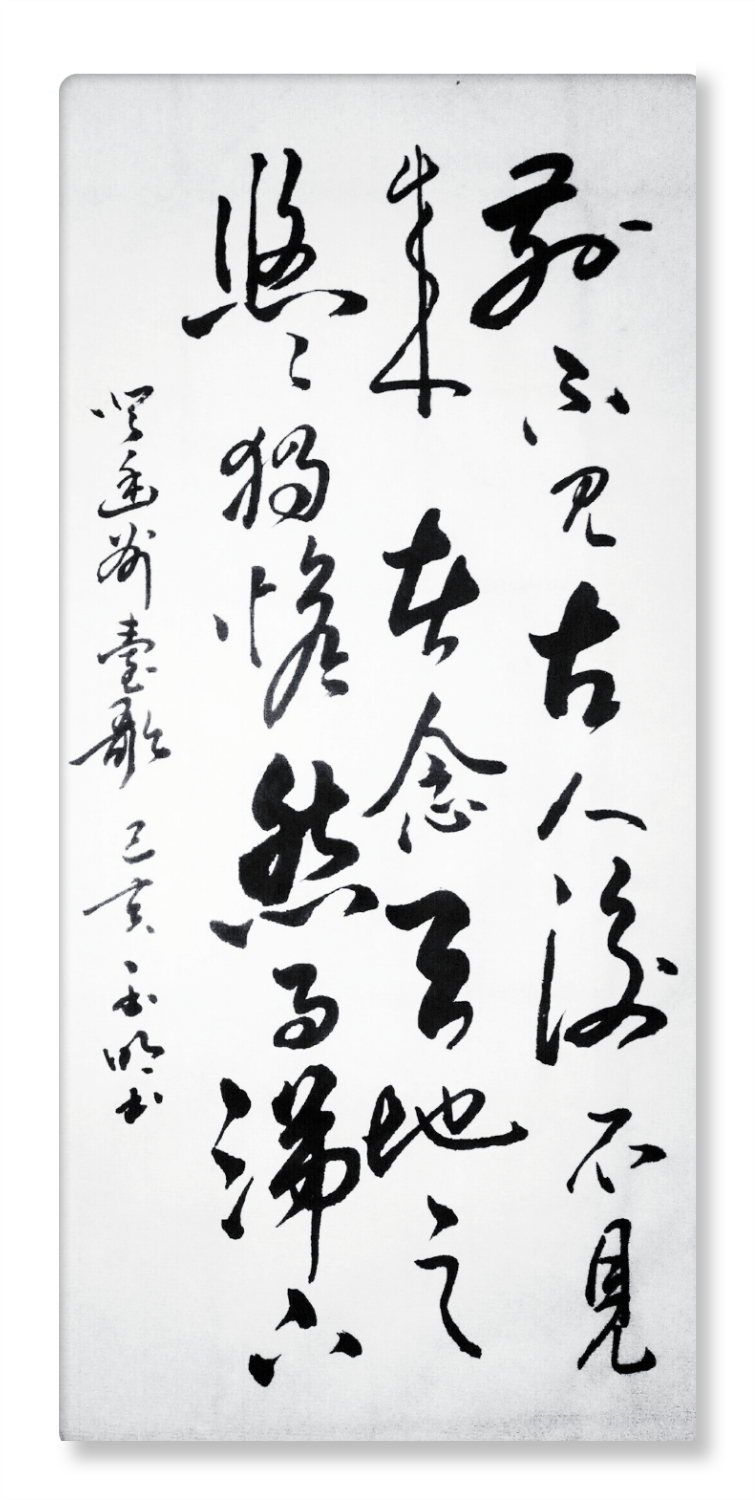 前不见古人後不見
来者念天地之
悠々獨愴然而涕下
登幽州臺歌 己亥 明书